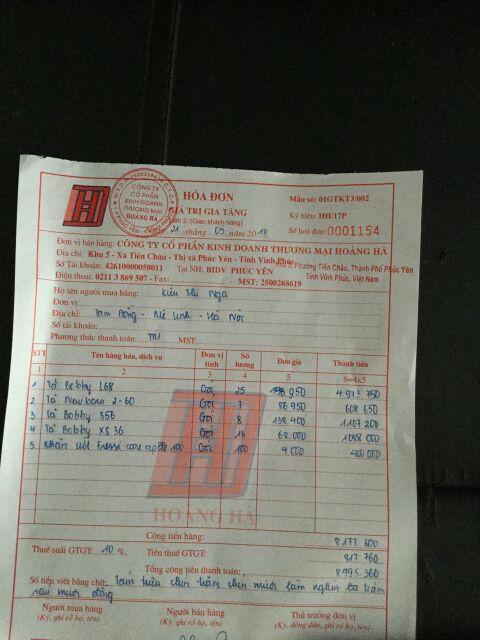 CÔNG TY
CỔ PHẦN
KINH DOANH
THƯƠNG MẠI
HOÀNG HÀ
HÓA ĐƠN
GIÁ TRỊ GIA TĂNG
Liên 2: (Giao khách hàng)
21 tháng 05 năm 2018
Mẫu số: 01GTKT3/002
Ký hiệu: HH/17P
Số hoá đơn: 0001154
Đơn vị bán hàng: CÔNG TY CỔ PHẦN KINH DOANH THƯƠNG MẠI HOÀNG HÀ
Địa chỉ: Khu 5 - Xã Tiền Châu - Thị xã Phúc Yên - Tỉnh Vĩnh Phúc
Phường Tiền Châu, Thành Phố Phúc Yên
Tỉnh Vĩnh Phúc, Việt Nam
Số Tài khoản: 42610000058011 Tại NH: BIDV PHÚC YÊN
Điện thoại: 0211 3 869 507 - Fax: MST: 2500268619
Họ tên người mua hàng: Kiều Thị Nga
Đơn vị:
Địa chỉ: Tam Đồng - Mê Linh - Hà Nội
Số tài khoản:
Phương thức thanh toán: TM MST:
STT Tên hàng hóa, dịch vụ Đơn vị tính Số lượng Đơn giá Thành tiền
1 2 3 4 5 6=4x5
1 Tã Bobby L68 Gói 25 198 950 4 973 750
2 Tã Newborn 2-60 Gói 7 86 950 608 650
3 Tã Bobby S56 Gói 8 138 400 1107 200
4 Tã Bobby XS 36 Gói 16 68 000 1088 000
5 Khăn ướt care 100 Gói 100 4 000 400 000
HOÀNG HÀ
Cộng tiền hàng: 8177 600
Thuế suất GTGT: 10 %, Tiền thuế GTGT: 817 760
Tổng cộng tiền thanh toán: 8 995 360
Số tiền viết bằng chữ: Tám triệu chín trăm chín mươi lăm nghìn ba trăm
sáu mươi đồng
Người mua hàng Người bán hàng Thủ trưởng đơn vị
(Ký, ghi rõ họ, tên) (Ký, ghi rõ họ, tên) (Ký, đóng dấu, ghi rõ họ, tên)